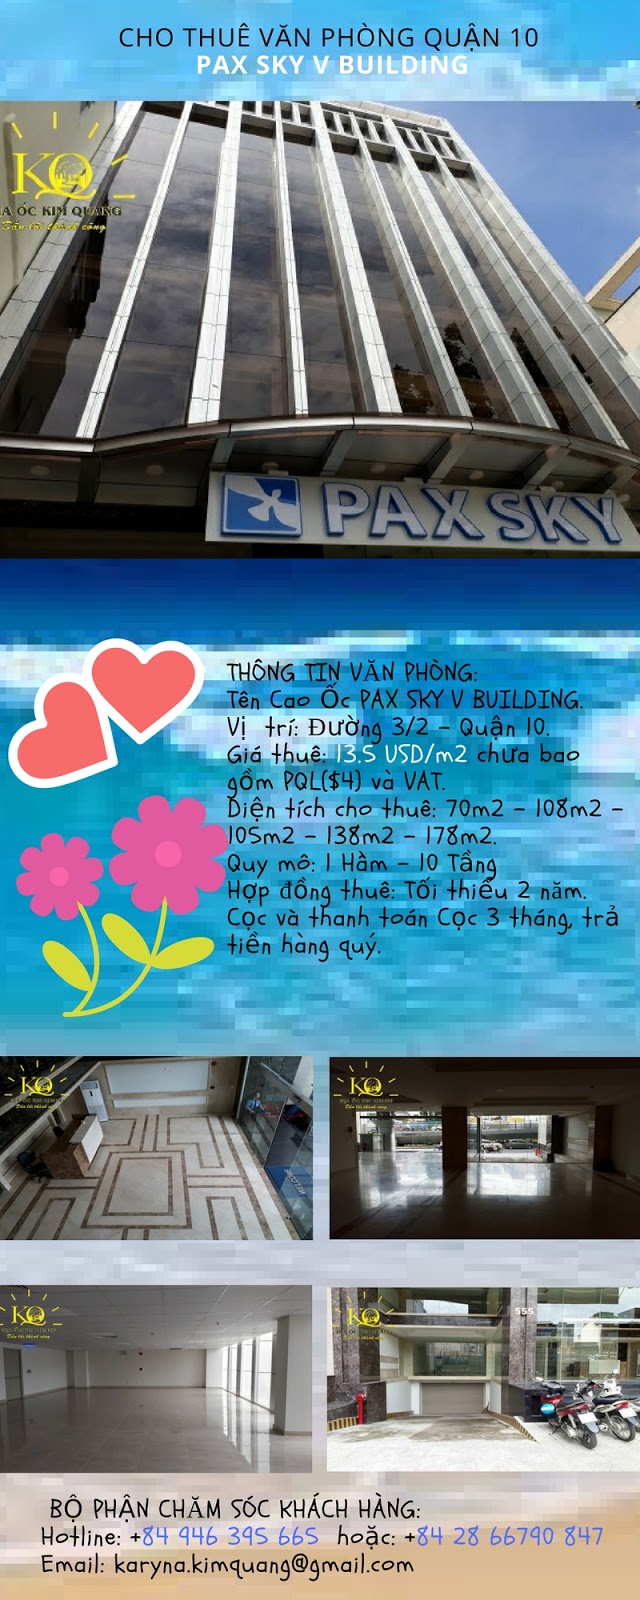 CHO THUÊ VĂN PHÒNG QUẬN 10
PAX SKY V BUILDING
KQ
ỊA ỐC KIM QUANG
Dẫn lối thành công
PAX SKY
THÔNG TIN VĂN PHÒNG:
Tên Cao Ốc PAX SKY V BUILDING.
Vị trí: Đường 3/2 - Quận 10.
Giá thuê: 13.5 USD/m2 chưa bao
gồm PQL($4) và VAT.
Diện tích cho thuê: 70m2 - 108m2 -
105m2 - 138m2 - 178m2.
Quy mô: 1 Hầm - 10 Tầng
Hợp đồng thuê: Tối thiểu 2 năm.
Cọc và thanh toán Cọc 3 tháng, trả
tiền hàng quý.
KQ
ĐỊA ỐC KIM QUANG
Dẫn lối thành công
KQ
ĐỊA ỐC KIM QUANG
Dẫn lối thành công
KQ
Dẫn lối thành công
KQ
Dẫn lối thành công
555
BỘ PHẬN CHĂM SÓC KHÁCH HÀNG:
Hotline: +84 946 395 665 hoặc: +84 28 66790 847
Email: karyna.kimquang@gmail.com